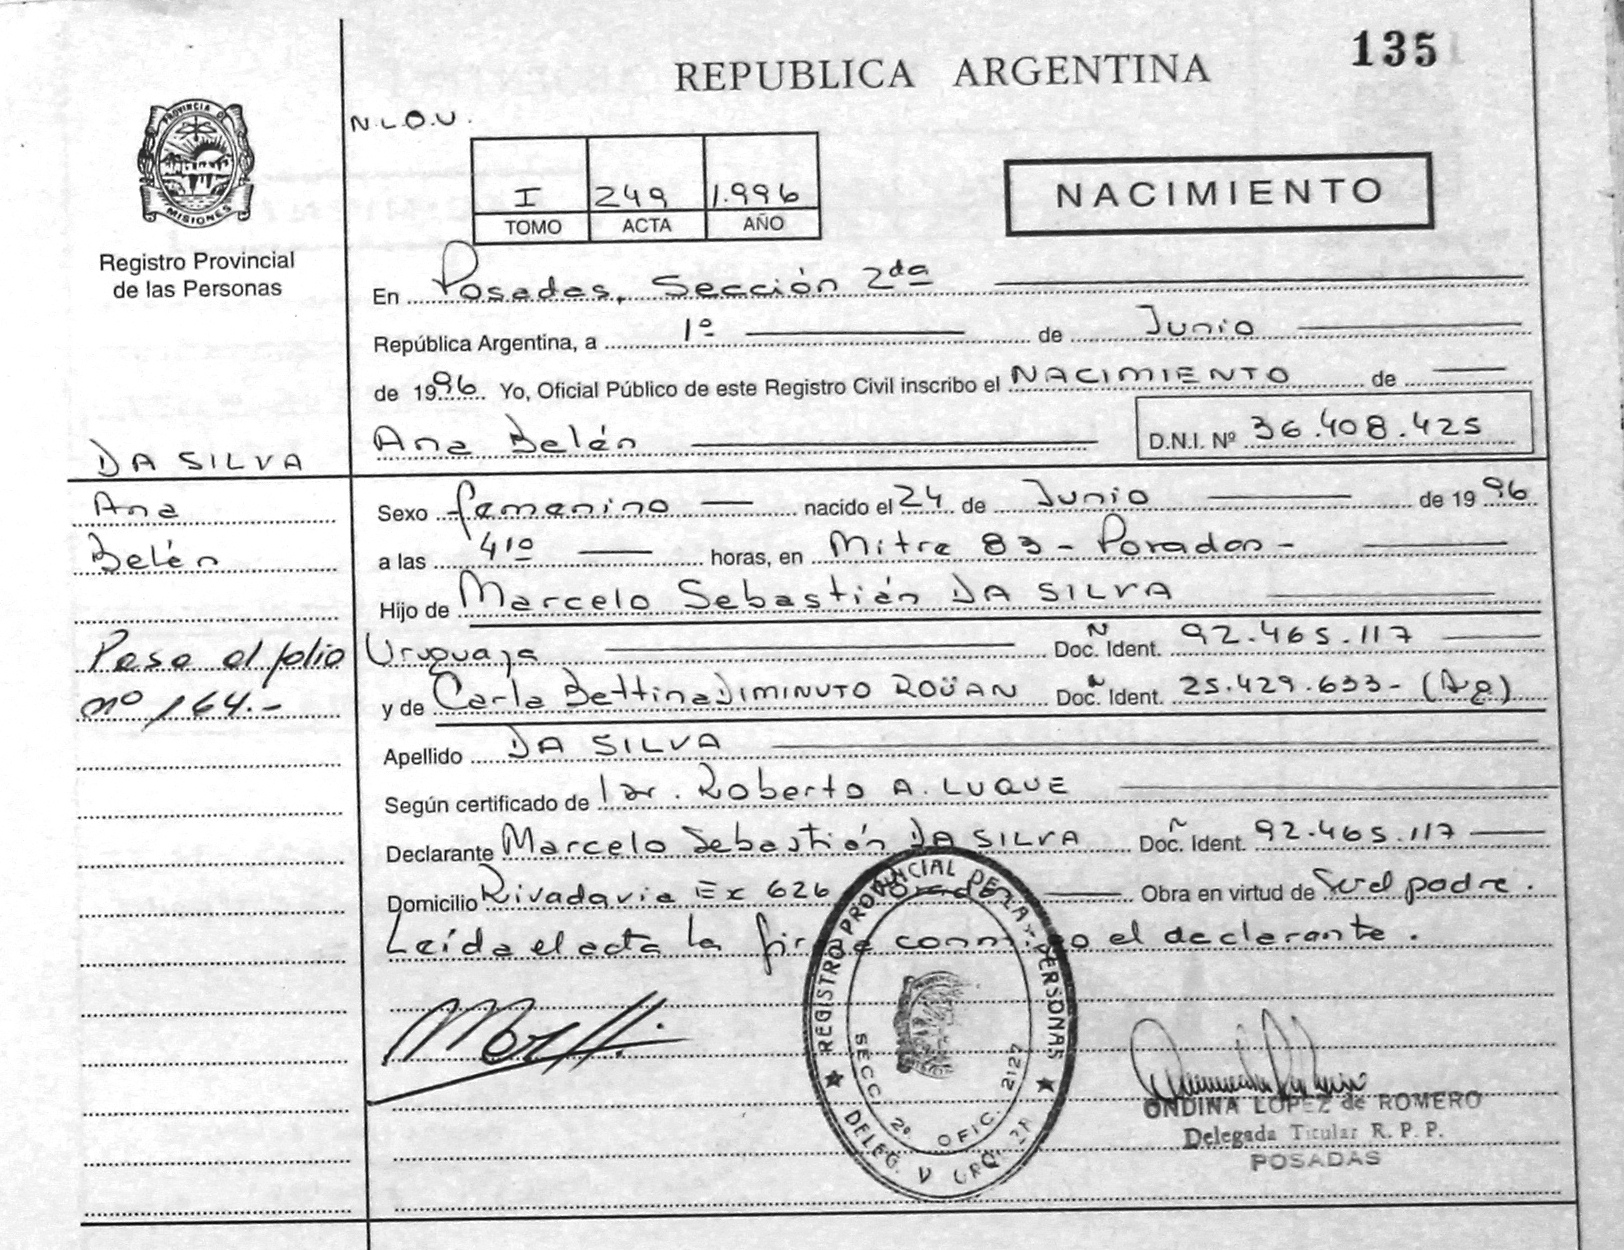 135
REPUBLICA ARGENTINA
PROVINCIA D
MISIONES
Registro Provincial
de las Personas
N.L.O.U.
I 249 1.996
TOMO ACTA AÑO
NACIMIENTO
En Posadas, Sección 2da
República Argentina, a 1º de Junio
de 1996. Yo, Oficial Público de este Registro Civil inscribo el NACIMIENTO de
Ana Belén D.N.I. Nº 36.408.425
DA SILVA
Ana
Belén
Pase al folio
nº 164.-
Sexo femenino nacido el 24 de Junio de 1996
a las 410 horas, en Mitre 83 - Posadas -
Hijo de Marcelo Sebastián DA SILVA
Uruguaja Doc. Ident. 92.465.117
y de Carla Bettina DIMINUTO ROÜAN Doc. Ident. 25.429.633 - (Ag)
Apellido DA SILVA
Según certificado de Dr. Roberto A. LUQUE
Declarante Marcelo Sebastián DA SILVA Doc. Ident. 92.465.117
Domicilio Rivadavia Ex 626 Obra en virtud de Ser el padre.
Leída el acta la firma conmigo el declarante.
REGISTRO PROVINCIAL DE LAS PERSONAS
SECC. 2º OFIC. 2127
DELEG.
ONDINA LOPEZ de ROMERO
Delegada Titular R. P. P.
POSADAS